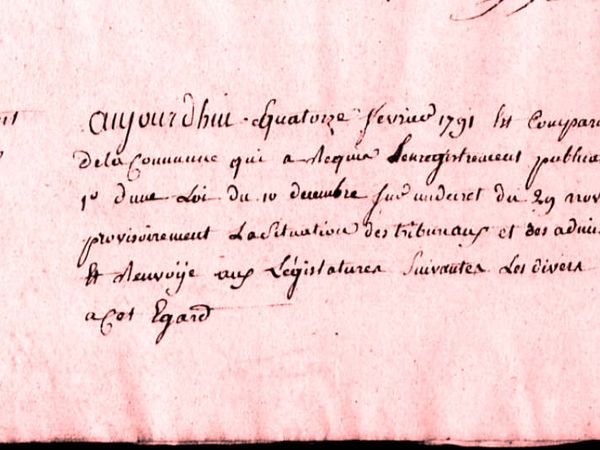 aujourdhui quatorze février 1791 Est Compar
de la Commune qui a Requis Lenregistrement publica
1º dune Loi du 10 decembre sur undecret du 29 nov
provisoirement LaSituation destribunaux et des admi
Et Renvoÿe aux Législatures Suivantes Les divers
acet Egard